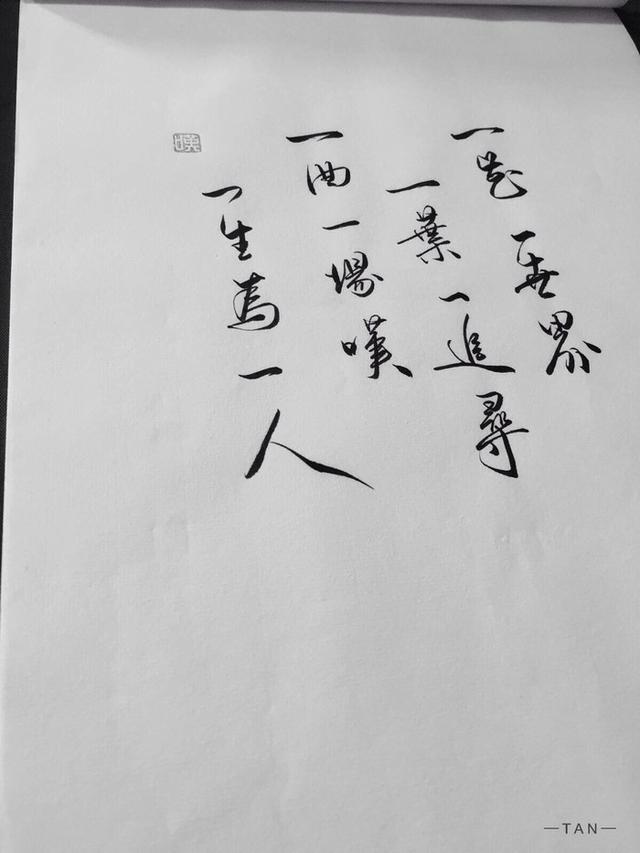 一花一世界
一葉一追尋
一曲一場嘆
一生為一人
嘆
—TAN—